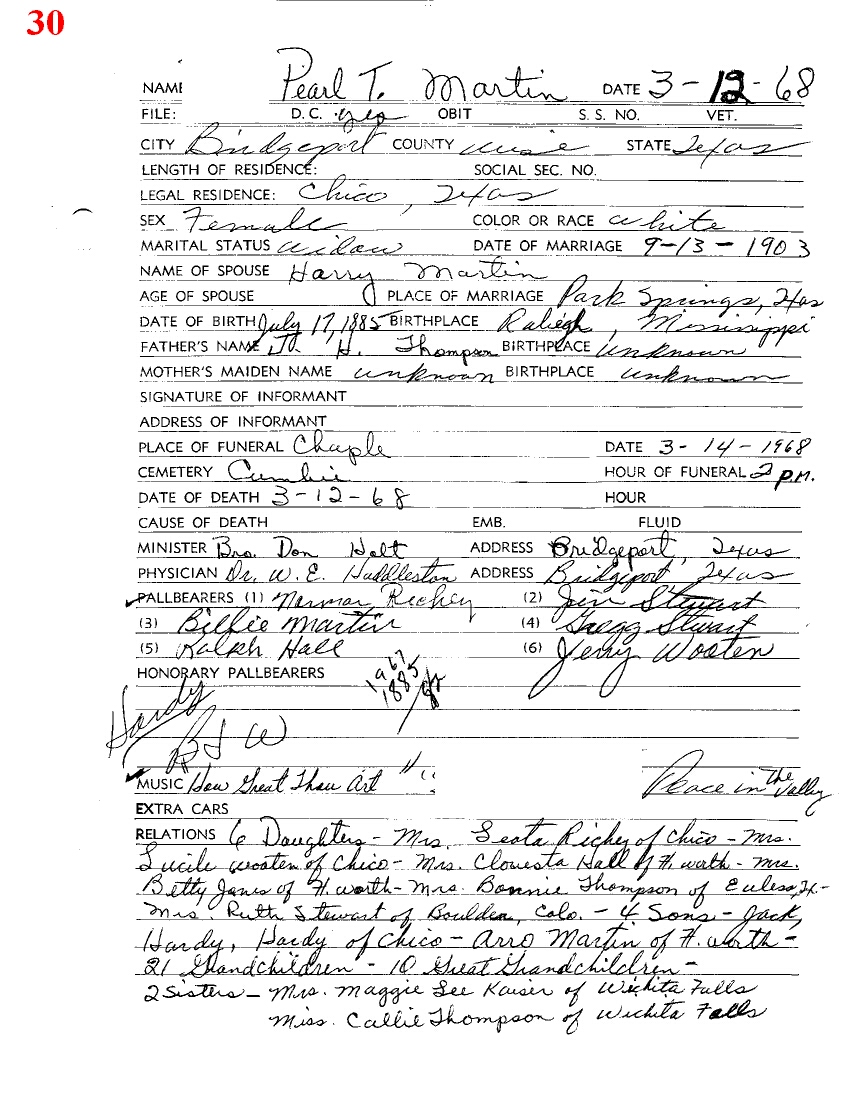 30
NAME Pearl T. Martin DATE 3-12-68
FILE: D.C. yes OBIT S. S. NO. VET.
CITY Bridgeport COUNTY Wise STATE Texas
LENGTH OF RESIDENCE: SOCIAL SEC. NO.
LEGAL RESIDENCE: Chico, Texas
SEX Female COLOR OR RACE White
MARITAL STATUS Widow DATE OF MARRIAGE 9-13-1903
NAME OF SPOUSE Harry Martin
AGE OF SPOUSE PLACE OF MARRIAGE Park Springs, Texas
DATE OF BIRTH July 17, 1885 BIRTHPLACE Raliegh, Mississippi
FATHER'S NAME H. Thompson BIRTHPLACE unknown
MOTHER'S MAIDEN NAME unknown BIRTHPLACE unknown
SIGNATURE OF INFORMANT
ADDRESS OF INFORMANT
PLACE OF FUNERAL Chaple DATE 3-14-1968
CEMETERY Cumbie HOUR OF FUNERAL 2 P.M.
DATE OF DEATH 3-12-68 HOUR
CAUSE OF DEATH EMB. FLUID
MINISTER Bro. Don Holt ADDRESS Bridgeport, Texas
PHYSICIAN Dr. W. E. Huddleston ADDRESS Bridgeport, Texas
PALLBEARERS (1) Norman Richey (2) Jim Stewart
(3) Billie Martin (4) Gregg Stwart
(5) Ralph Hall (6) Jerry Wooten
HONORARY PALLBEARERS 1967
1885
Hardy
BJW
MUSIC How Great Thou Art " Peace in the Valley
EXTRA CARS
RELATIONS 6 Daughters - Mrs. Leota Richey of Chico - Mrs.
Lucile Wooten of Chico - Mrs. Clowesta Hall of Ft. Worth - Mrs.
Betty Janes of Ft. Worth - Mrs. Bonnie Thompson of Euless, Tx. -
Mrs. Ruth Stewart of Boulden, Colo. - 4 Sons - Jack,
Hardy, Hardy of Chico - Arro Martin of Ft. Worth -
21 Grandchildren - 10 Great Grandchildren -
2 Sisters - Mrs. Maggie Lee Kaiser of Wichita Falls
Miss. Callie Thompson of Wichita Falls